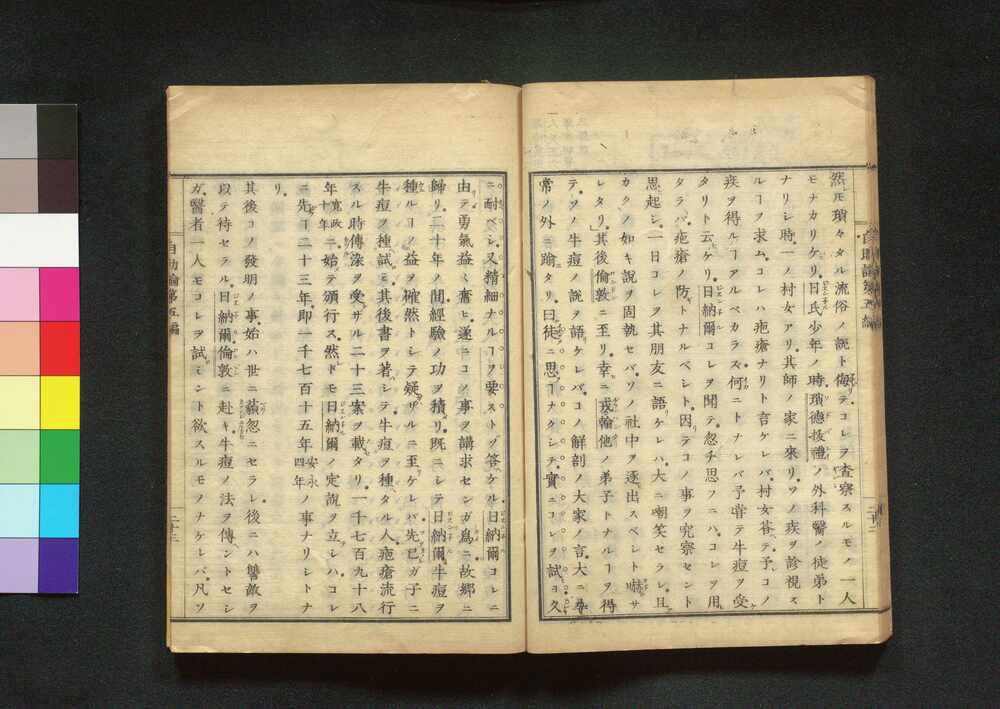 然ㇳモ瑣々タル流俗ノ説ト侮テコレヲ査察スルモノ一人
モナカリケリ日氏少年ノ時瑣徳抜禮ノ外科醫ノ徒弟ト
ナリシ時一ノ村女アリ其師ノ家ニ來リソノ疾ヲ診視ス
ルヿヲ求ムコレハ疱瘡ナリト言ケレバ村女荅テ予コノ
疾ヲ得ルヿアルベカラズ何ニトナレバ予甞テ牛痘ヲ受
タリト云ケリ日納爾コレヲ聞テ忽チ思フニハコレヲ用
タラバ疱瘡ノ防トナルベシト因テコノ事ヲ究察セント
思起シ一日コレヲ其朋友ニ語ケレハ大ニ嘲笑セラレ且
カクノ如キ説ヲ固執セバソノ社中ヲ逐出スベシト嚇サ
レタリ其後倫敦ニ至リ幸ニ戎翰他ノ弟子トナルヿヲ得
テソノ牛痘ノ説ヲ語ケレバコノ解剖ノ大家ノ言大ニ尋
常ノ外ニ踰タリ曰徒ニ思フヿナクシテ實ニコレヲ試ヨ久
ニ耐ベシ又精細ナルヿヲ要ストゾ答ケル日納爾コレニ
由テ勇氣益々奮ヒ遂ニコノ事ヲ講求センガ為ニ故郷ニ
歸リ二十年ノ間經驗ノ功ヲ積リ既ニシテ日納爾牛痘ヲ
種ルヿノ益ヲ確然トシテ疑ザルニ至ケレバ先己ガ子ニ
牛痘ヲ種試ミ其後書ヲ著シテ牛痘ヲ種タル人疱瘡流行
スル時傳染ヲ受ザル二十三案ヲ載タリ一千七百九十八
年寛政十年ニ始テ頒行ス然レドモ日納爾ノ定説ヲ立シハコレ
ニ先ヿ二十三年即一千七百七十五年安永四年ノ事ナリシトナ
リ
其後コノ發明ノ事始ハ世ニ藐忽ニセラレ後ニハ讐敵ヲ
以テ待セラル日納爾倫敦ニ赴キ牛痘ノ法ヲ傳ントセシ
ガ醫者一人モコレヲ試ミント欲スルモノナケレバ凡ソ
自助論第五編
二十三